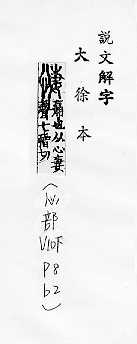 說文解字
大徐本
悽痛也从心妻
聲七稽切
(心部
V10F
P8
b2)